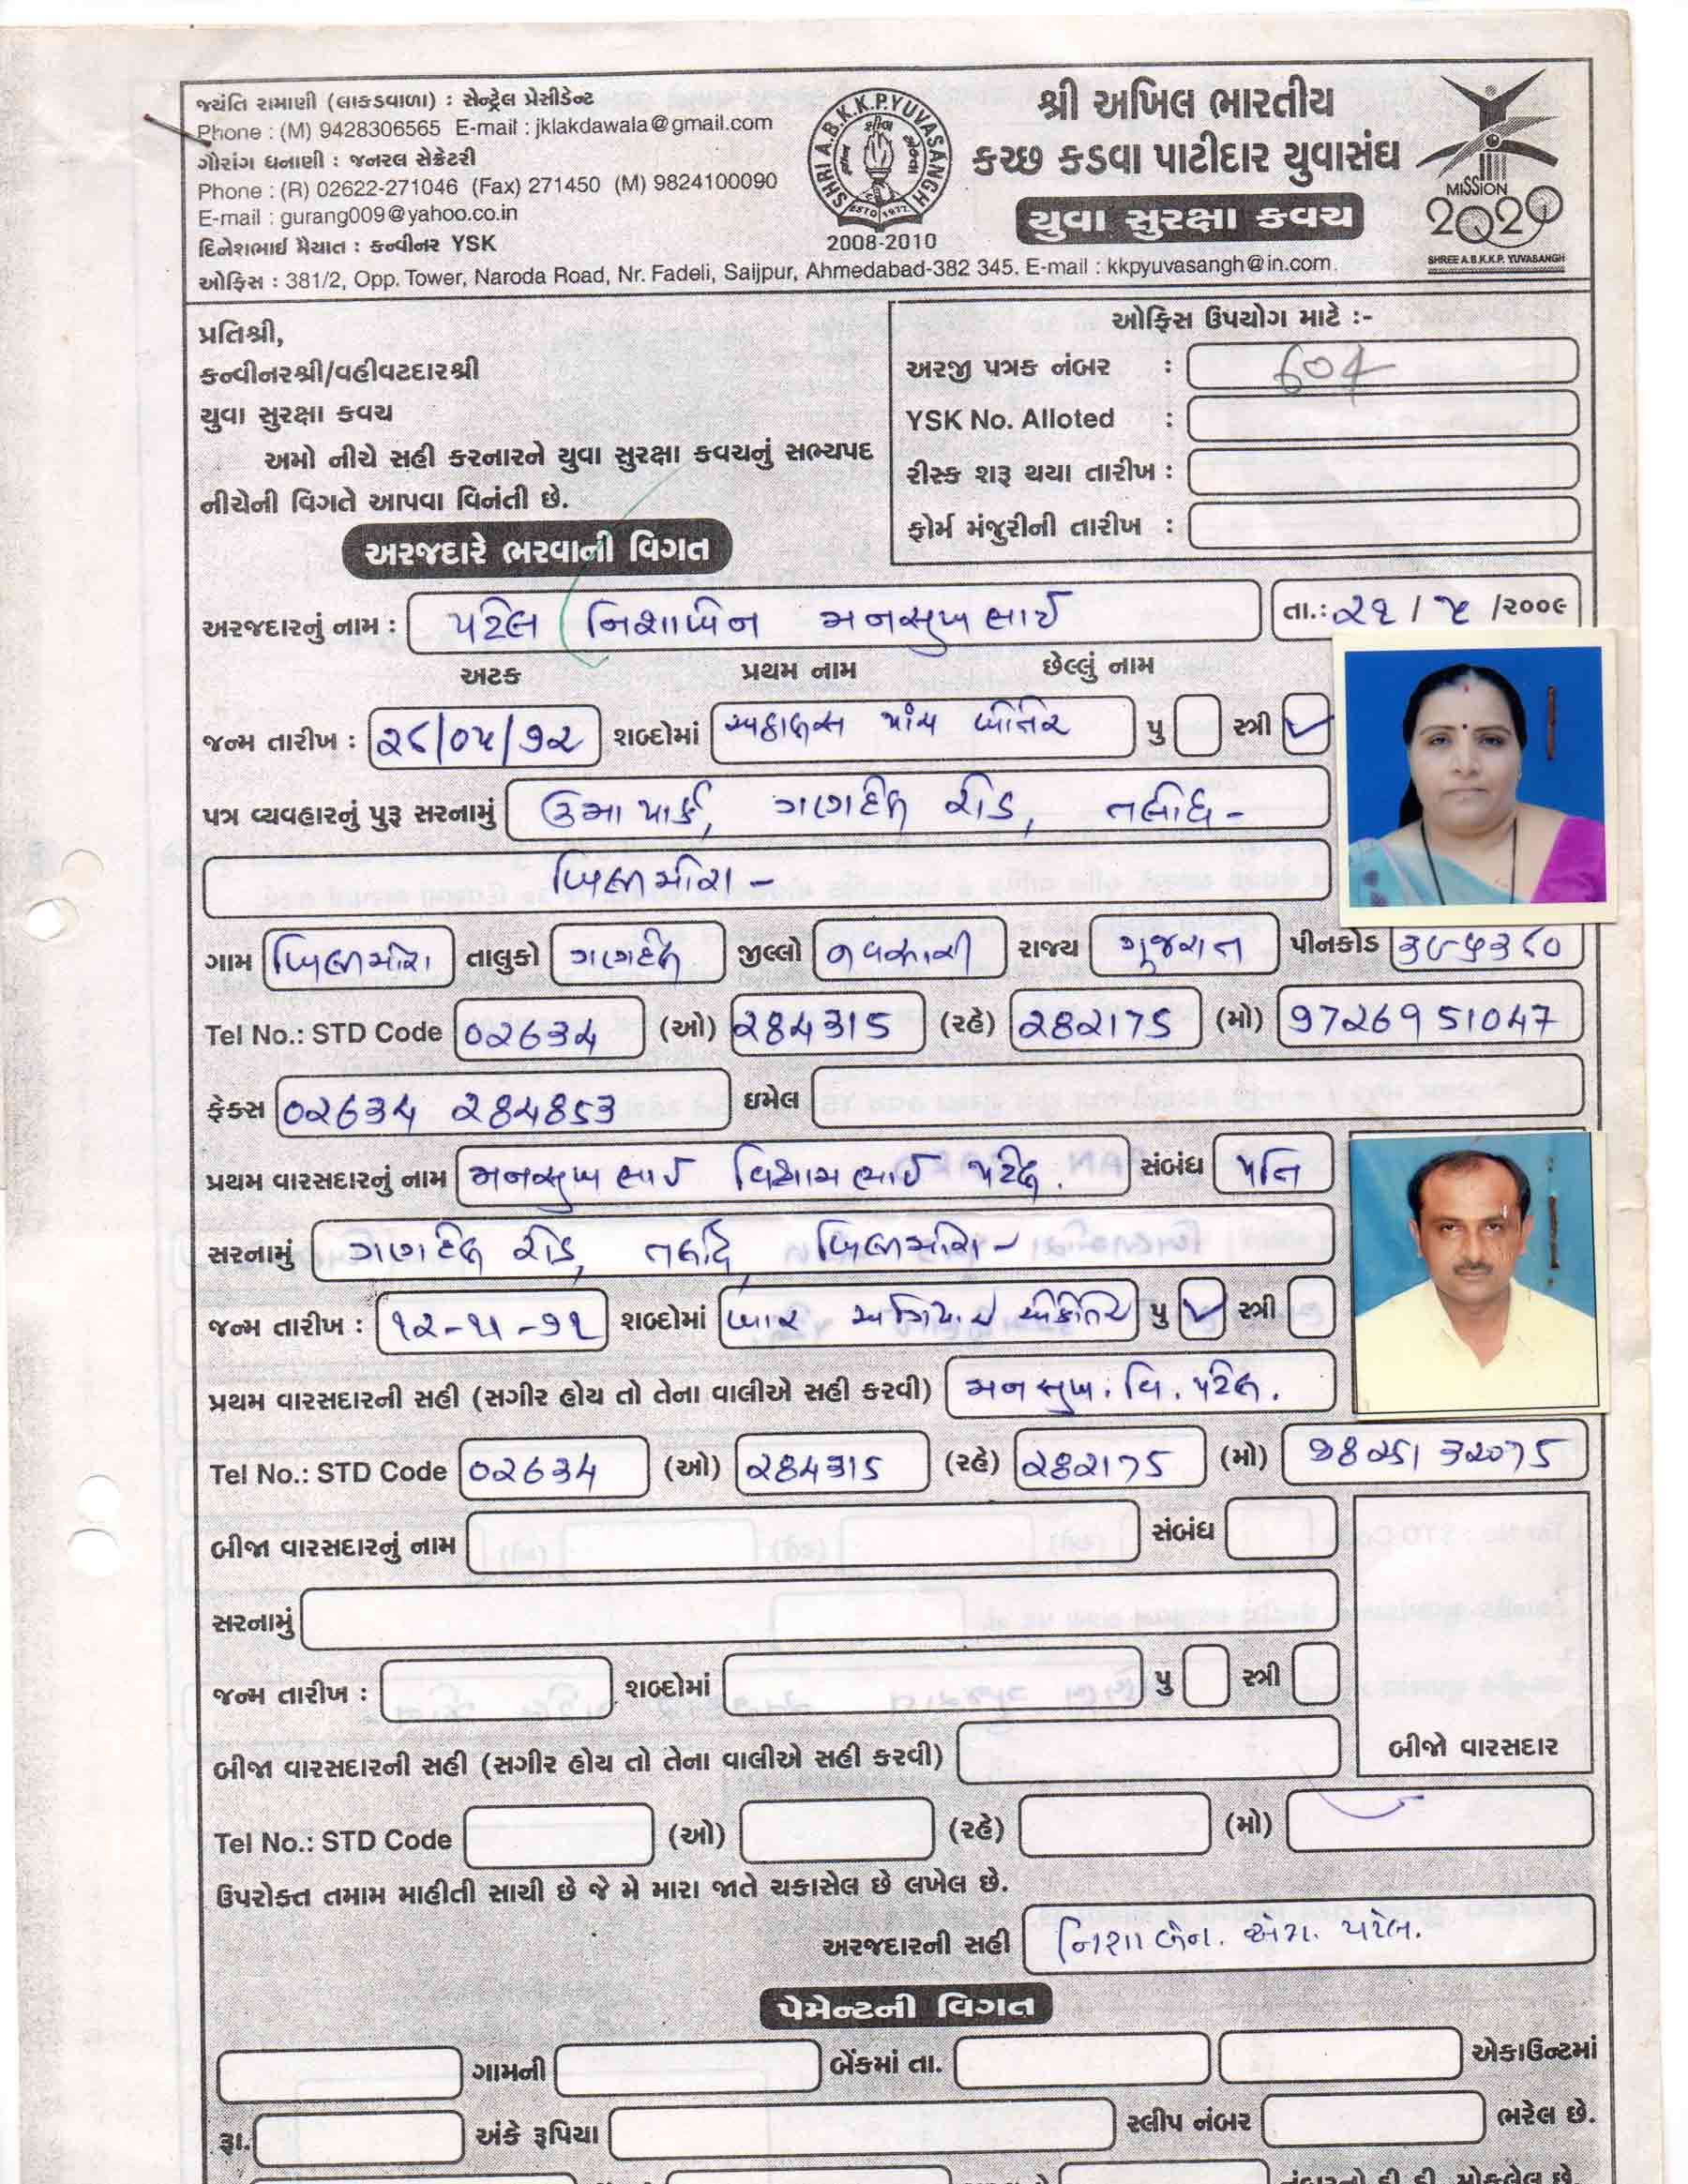 જયંતિ રામાણી (લાકડાવાળા) : સેન્ટ્રેલ પ્રેસીડેન્ટ
Phone : (M) 9428306565 E-mail : jklakdawala@gmail.com
ગૌરાંગ ધનાણી : જનરલ સેક્રેટરી
Phone : (R) 02622-271046 (Fax) 271450 (M) 9824100090
E-mail : gurang009@yahoo.co.in
દિનેશભાઈ મૈયાત : કન્વીનર YSK
SHRI A.B.K.K.P.YUVASANGH
ESTD 1972
2008-2010
શ્રી અખિલ ભારતીય
કચ્છ કડવા પાટીદાર યુવાસંઘ
યુવા સુરક્ષા કવચ
MISSION
2020
SHREE A.B.K.K.P. YUVASANGH
ઓફિસ : 381/2, Opp. Tower, Naroda Road, Nr. Fadeli, Saijpur, Ahmedabad-382 345. E-mail : kkpyuvasangh@in.com.
પ્રતિશ્રી,
કન્વીનરશ્રી/વહીવટદારશ્રી
યુવા સુરક્ષા કવચ
અમો નીચે સહી કરનારને યુવા સુરક્ષા કવચનું સભ્યપદ
નીચેની વિગતે આપવા વિનંતી છે.
ઓફિસ ઉપયોગ માટે :-
અરજી પત્રક નંબર : 604
YSK No. Alloted :
રીસ્ક શરૂ થયા તારીખ :
ફોર્મ મંજુરીની તારીખ :
અરજદારે ભરવાની વિગત
અરજદારનું નામ : પટેલ નિશાબેન મનસુખભાઈ તા.: ૨૧ / ૫ /૨૦૦૯
અટક પ્રથમ નામ છેલ્લું નામ
જન્મ તારીખ : ૨૮/૦૫/૭૨ શબ્દોમાં અઠ્ઠાવીસ પાંચ બોતેર પુ સ્ત્રી ✓
પત્ર વ્યવહારનું પુરૂ સરનામું ઉમા પાર્ક, ગણદેવી રોડ, તલોધ -
બિલીમોરા -
ગામ બિલીમોરા તાલુકો ગણદેવી જીલ્લો નવસારી રાજ્ય ગુજરાત પીનકોડ ૩૯૬૩૮૦
Tel No.: STD Code 02634 (ઓ) 284315 (રહે) 282175 (મો) 9726951047
ફેક્સ 02634 284853 ઇમેલ
પ્રથમ વારસદારનું નામ મનસુખભાઈ વિશ્રામભાઈ પટેલ. સંબંધ પતિ
સરનામું ગણદેવી રોડ, તલોધ, બિલીમોરા -
જન્મ તારીખ : ૧૨-૧૧-૭૧ શબ્દોમાં બાર અગિયાર એકોતેર પુ ✓ સ્ત્રી
પ્રથમ વારસદારની સહી (સગીર હોય તો તેના વાલીએ સહી કરવી) મનસુખ. વિ. પટેલ.
Tel No.: STD Code 02634 (ઓ) 284315 (રહે) 282175 (મો) 9825132075
બીજા વારસદારનું નામ સંબંધ
સરનામું
જન્મ તારીખ : શબ્દોમાં પુ સ્ત્રી
બીજા વારસદારની સહી (સગીર હોય તો તેના વાલીએ સહી કરવી)
બીજો વારસદાર
Tel No.: STD Code (ઓ) (રહે) (મો)
ઉપરોક્ત તમામ માહીતી સાચી છે જે મે મારા જાતે ચકાસેલ છે લખેલ છે.
અરજદારની સહી નિશાબેન. એમ. પટેલ.
પેમેન્ટની વિગત
ગામની બેંકમાં તા. એકાઉન્ટમાં
રૂા. અંકે રૂપિયા સ્લીપ નંબર ભરેલ છે.